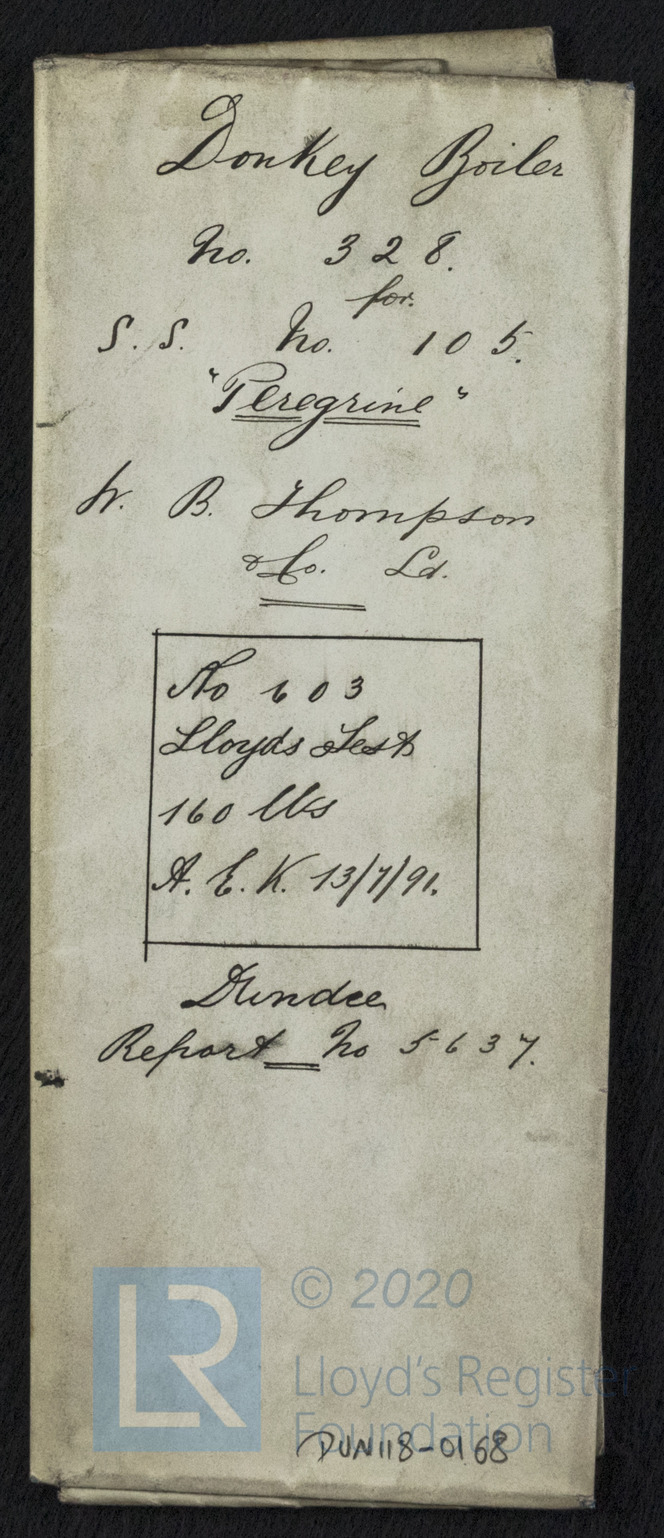 Donkey Boiler
No. 328.
for.
S.S. No. 105.
"Peregrine"
W. B. Thompson
& Co. Ld.
No 603
Lloyds Test
160 lbs
A. E. K. 13/7/91.
Dundee
Report No 5637.
LR
© 2020
Lloyd's Register
Foundation
DUN118-0168